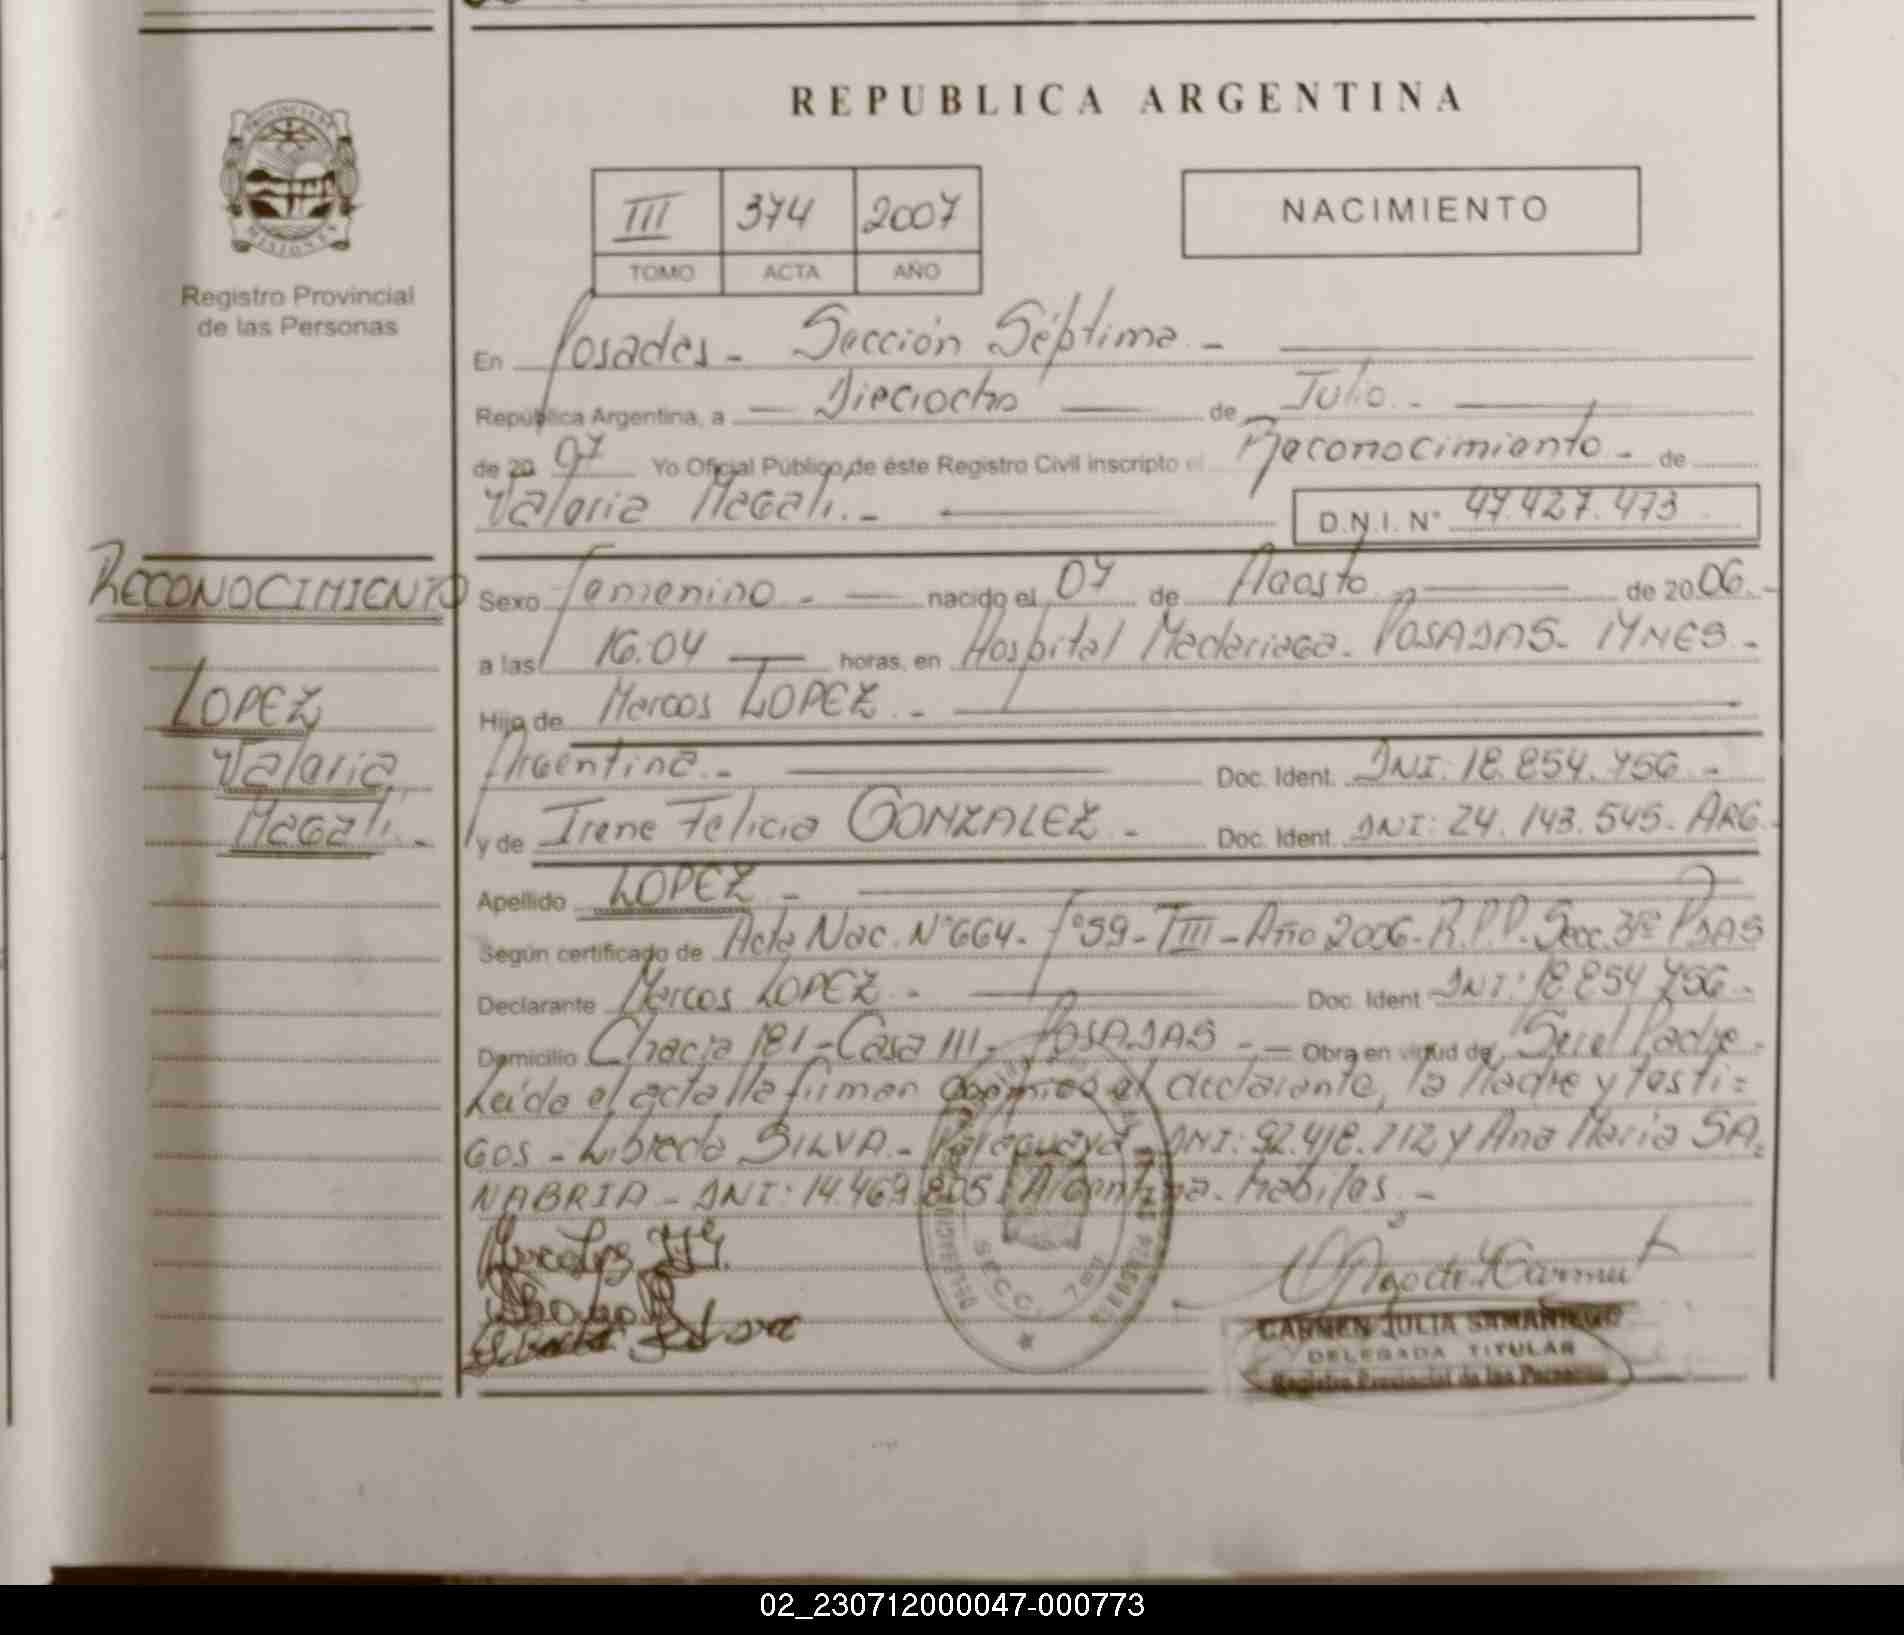 REPUBLICA ARGENTINA
PROVINCIA DE
MISIONES
Registro Provincial
de las Personas
III 374 2007
TOMO ACTA AÑO
NACIMIENTO
En Posadas - Sección Séptima. -
República Argentina, a Dieciocho de Julio. -
de 20 07 Yo Oficial Público de éste Registro Civil inscripto el Reconocimiento - de
Valeria Magali. - D.N.I. N° 47.427.473
RECONOCIMIENTO
LOPEZ
Valeria
Magali. -
Sexo Femenino - nacido el 07 de Agosto de 2006. -
a las 16.04 horas, en Hospital Madariaga. POSADAS - MNES -
Hijo de Marcos LOPEZ. -
Argentina. - Doc. Ident. DNI: 18.854.756 -
y de Irene Felicia GONZALEZ - Doc. Ident. DNI: 24.143.545. ARG.
Apellido LOPEZ -
Según certificado de Acta Nac. N° 664. F° 59 - TIII - Año 2006. R.P.P. Secc. 3ra PSAS
Declarante Marcos LOPEZ - Doc. Ident DNI: 18 854 756 -
Domicilio 181 - Casa 111 - POSADAS - Obra en virtud de Ser el Padre -
Leída el acta la firman conmigo el declarante, la Madre y testi=
GOS - Librada SILVA - Paraguaya - DNI: 92.418.712 y Ana Maria SA=
NABRIA - DNI: 14.469.805. Argentina. Habiles. -
SECC. 7ma
CARMEN JULIA SAMANIEGO
DELEGADA TITULAR
Registro Provincial de las Personas
02_230712000047-000773